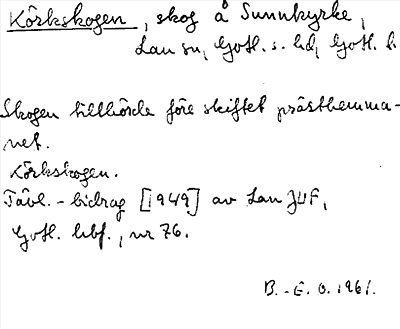 Körkskogen, skog å Sunnkyrke,
Lau sn, Gotl. s. hd, Gotl. l.
Skogen tillhörde före skiftet prästhemma-
net.
Körkskogen.
Tävl.-bidrag [1949] av Lau JUF,
Gotl. hbf., nr 76.
B.-E. O. 1961.